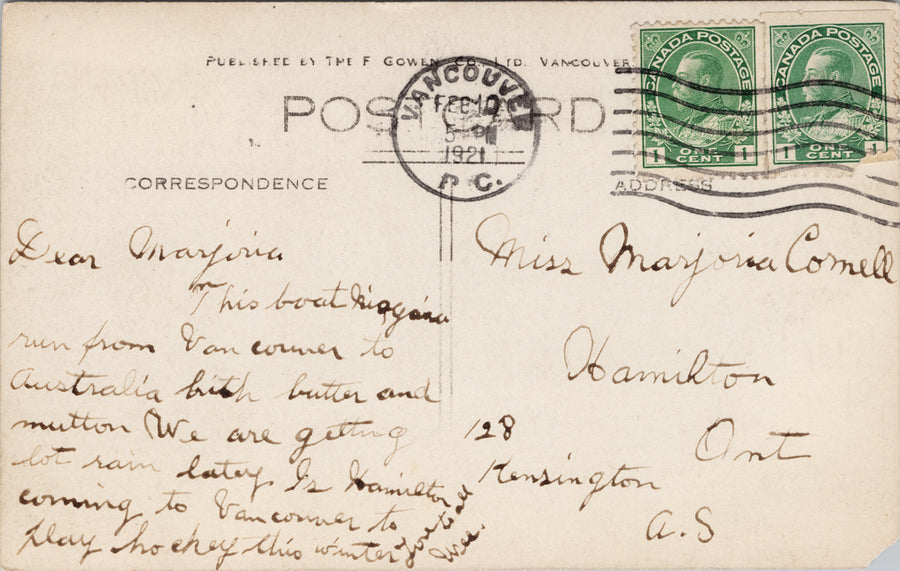 PUBLISHED BY THE F GOWEN CO., LTD. VANCOUVER
POST CARD
VANCOUVER
FEB 10
5 PM
1921
B.C.
CANADA POSTAGE
1 ONE CENT 1
CANADA POSTAGE
1 ONE CENT 1
CORRESPONDENCE
ADDRESS
Dear Marjoria
This boat Niagara
run from Vancouver to
Australia with butter and
mutton We are getting
lot rain latey Is Hamilton
coming to Vancouver to
play hockey this winter
Love to all
Miss Marjoria Cornell
Hamilton
128 Ont
Kensington
A.S